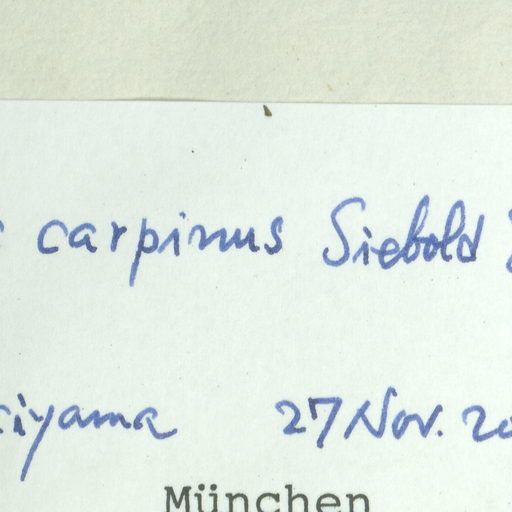 carpinus Siebold
iyama 27 Nov. 20
München